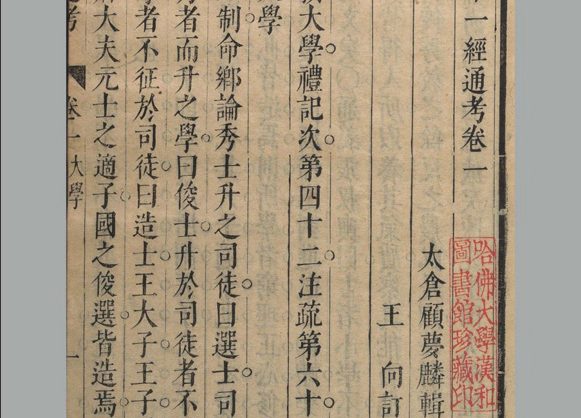 一經通考卷一
哈佛大學漢和
圖書館珍藏印
太倉顧夢麟輯
王 向訂
大學禮記次第四十二注疏第六十
學
制命鄉論秀士升之司徒曰選士司
者而升之學曰俊士升於司徒者不
者不征於司徒曰造士王大子王子
大夫元士之適子國之俊選皆造焉
考 卷一 大學 一